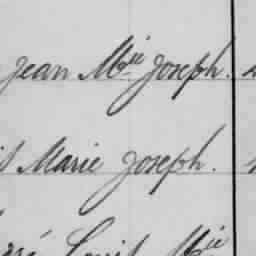 Jean Mie Joseph.
Marie Joseph.
Louis Mie